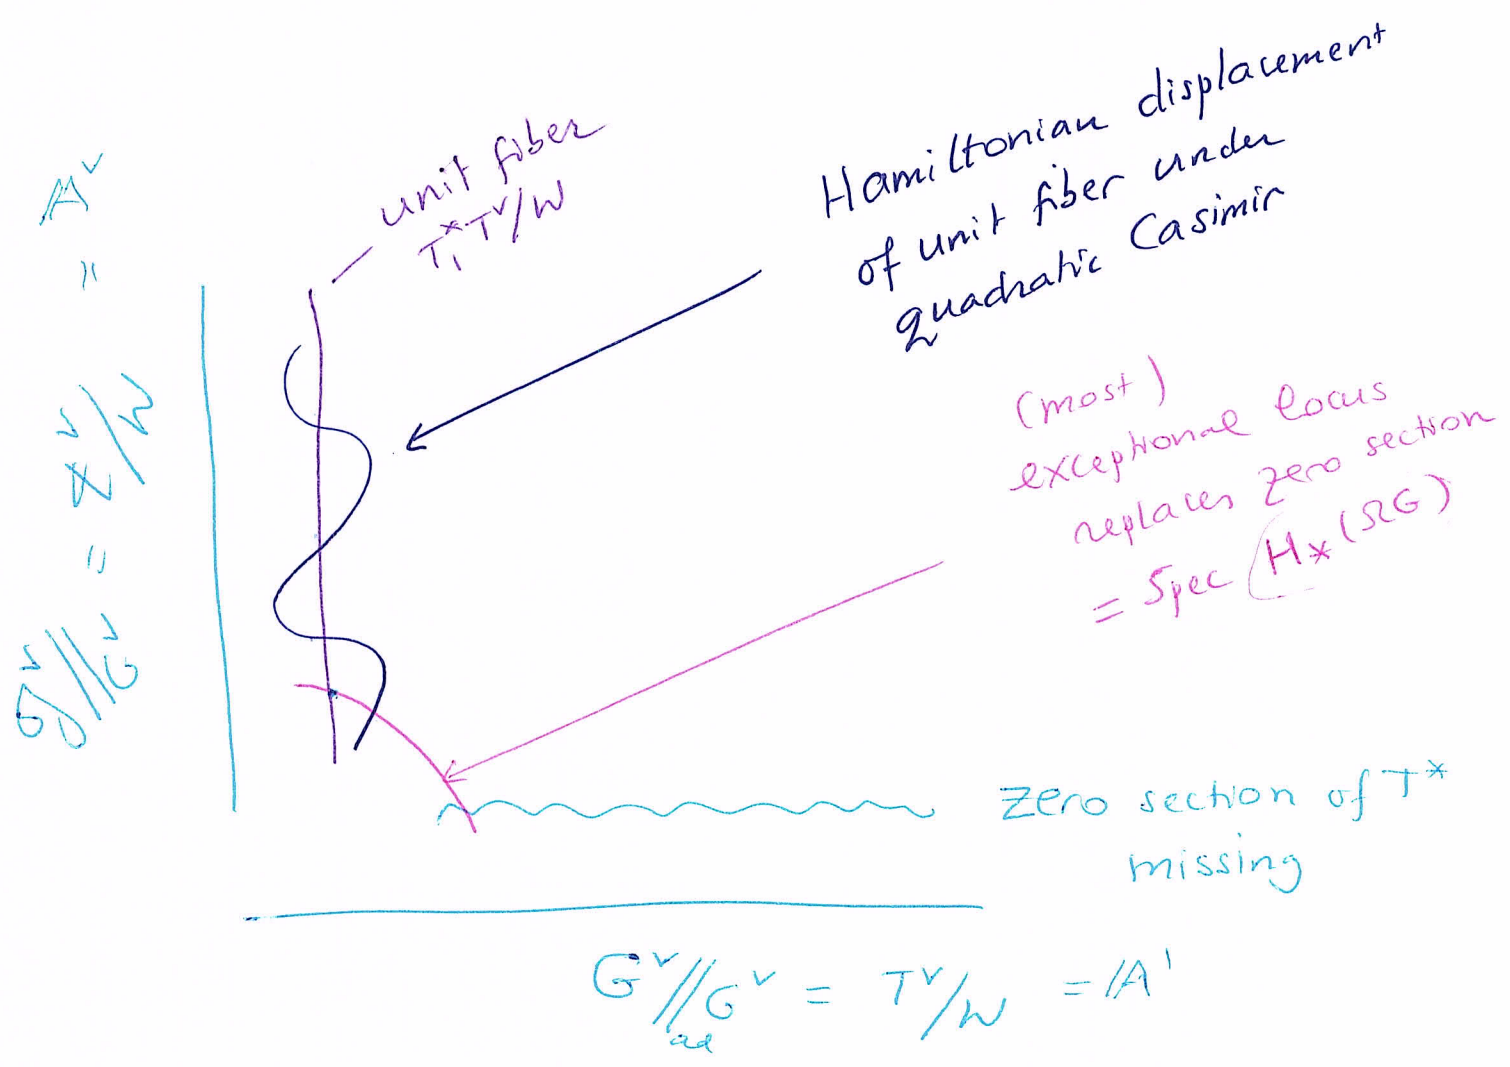 unit fiber
T₁*T^∨/W
Hamiltonian displacement
of unit fiber under
quadratic Casimir
(most)
exceptional locus
replaces zero section
= Spec H_*(ΩG)
A^∨
=
/W
=
𝔤^∨//G^∨
zero section of T*
missing
G^∨//_ad G^∨ = T^∨/W = A¹